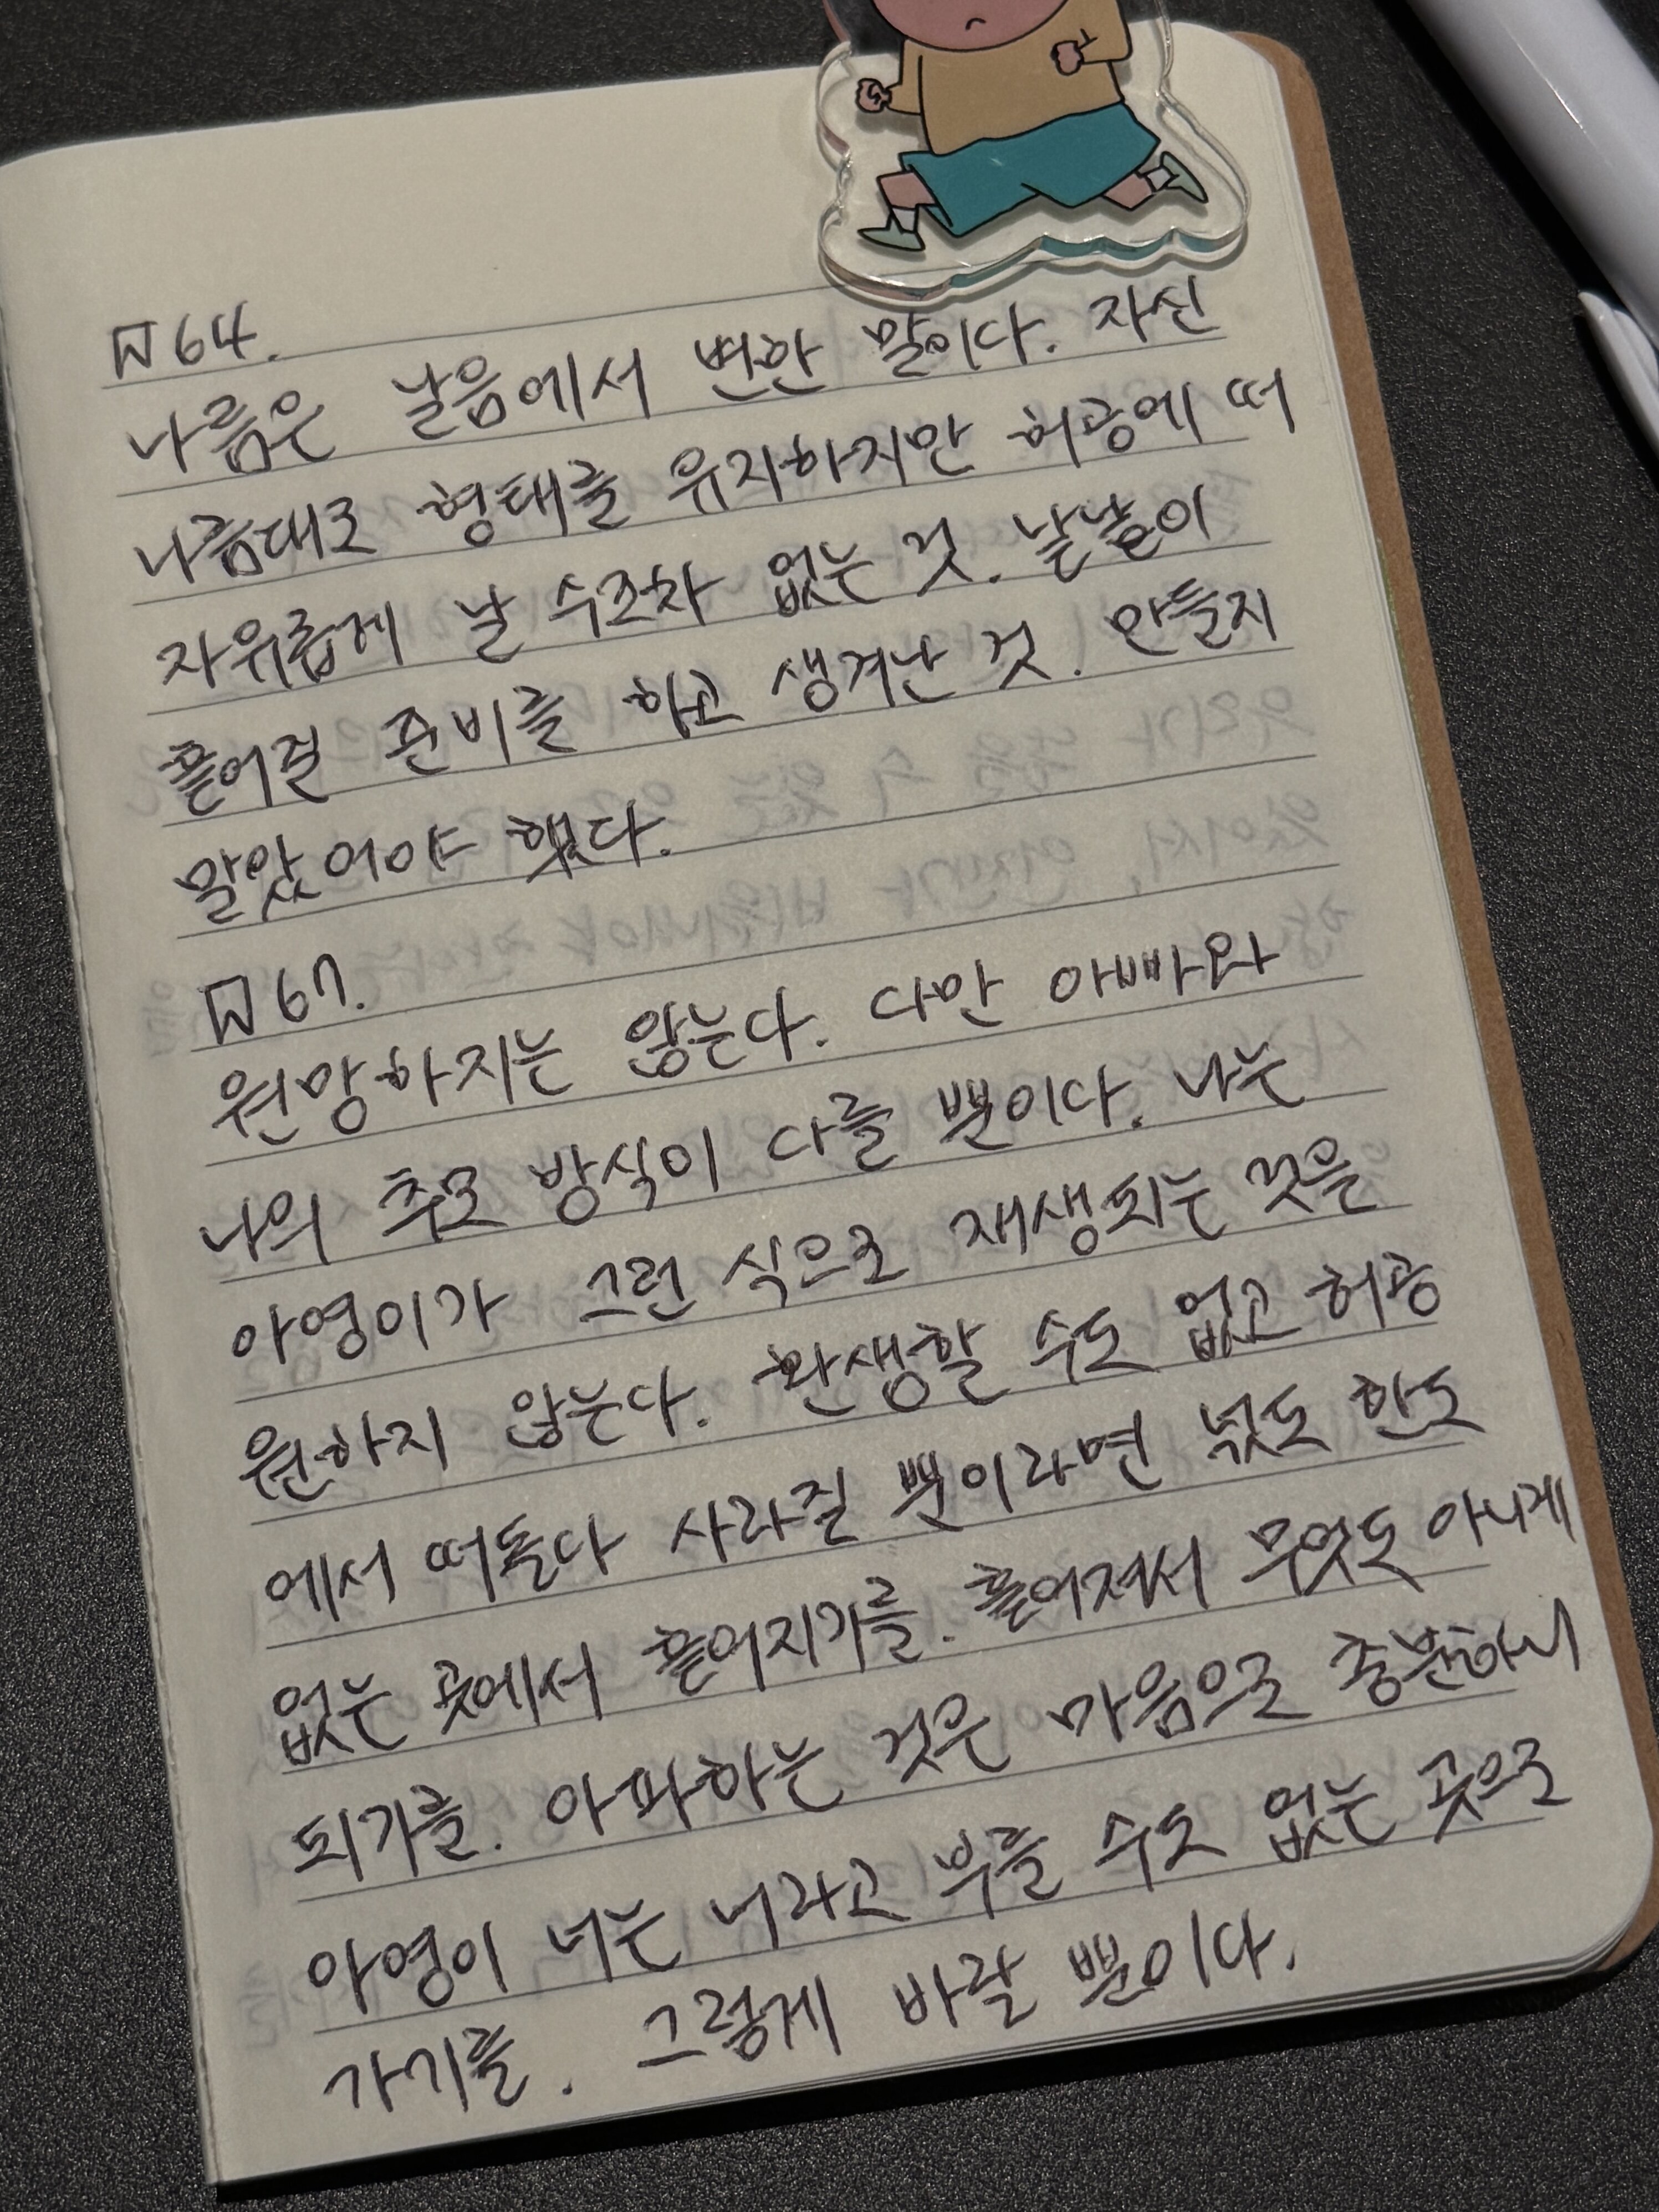 64.
나름은 날음에서 변한 말이다. 자신
나름대로 형태를 유지하지만 허공에 떠
자유롭게 날 수조차 없는 것. 낱낱이
흩어질 준비를 하고 생겨난 것. 만들지
말았어야 했다.
67.
원망하지는 않는다. 다만 아빠와
나의 추모 방식이 다를 뿐이다. 나는
아영이가 그런 식으로 재생되는 것을
원하지 않는다. 환생할 수도 없고 허공
에서 떠돌다 사라질 뿐이라면 넋도 한도
없는 곳에서 흩어지기를. 흩어져서 무엇도 아니게
되기를. 아파하는 것은 마음으로 충분하니
아영이 너는 너라고 부를 수도 없는 곳으로
가기를. 그렇게 바랄 뿐이다.